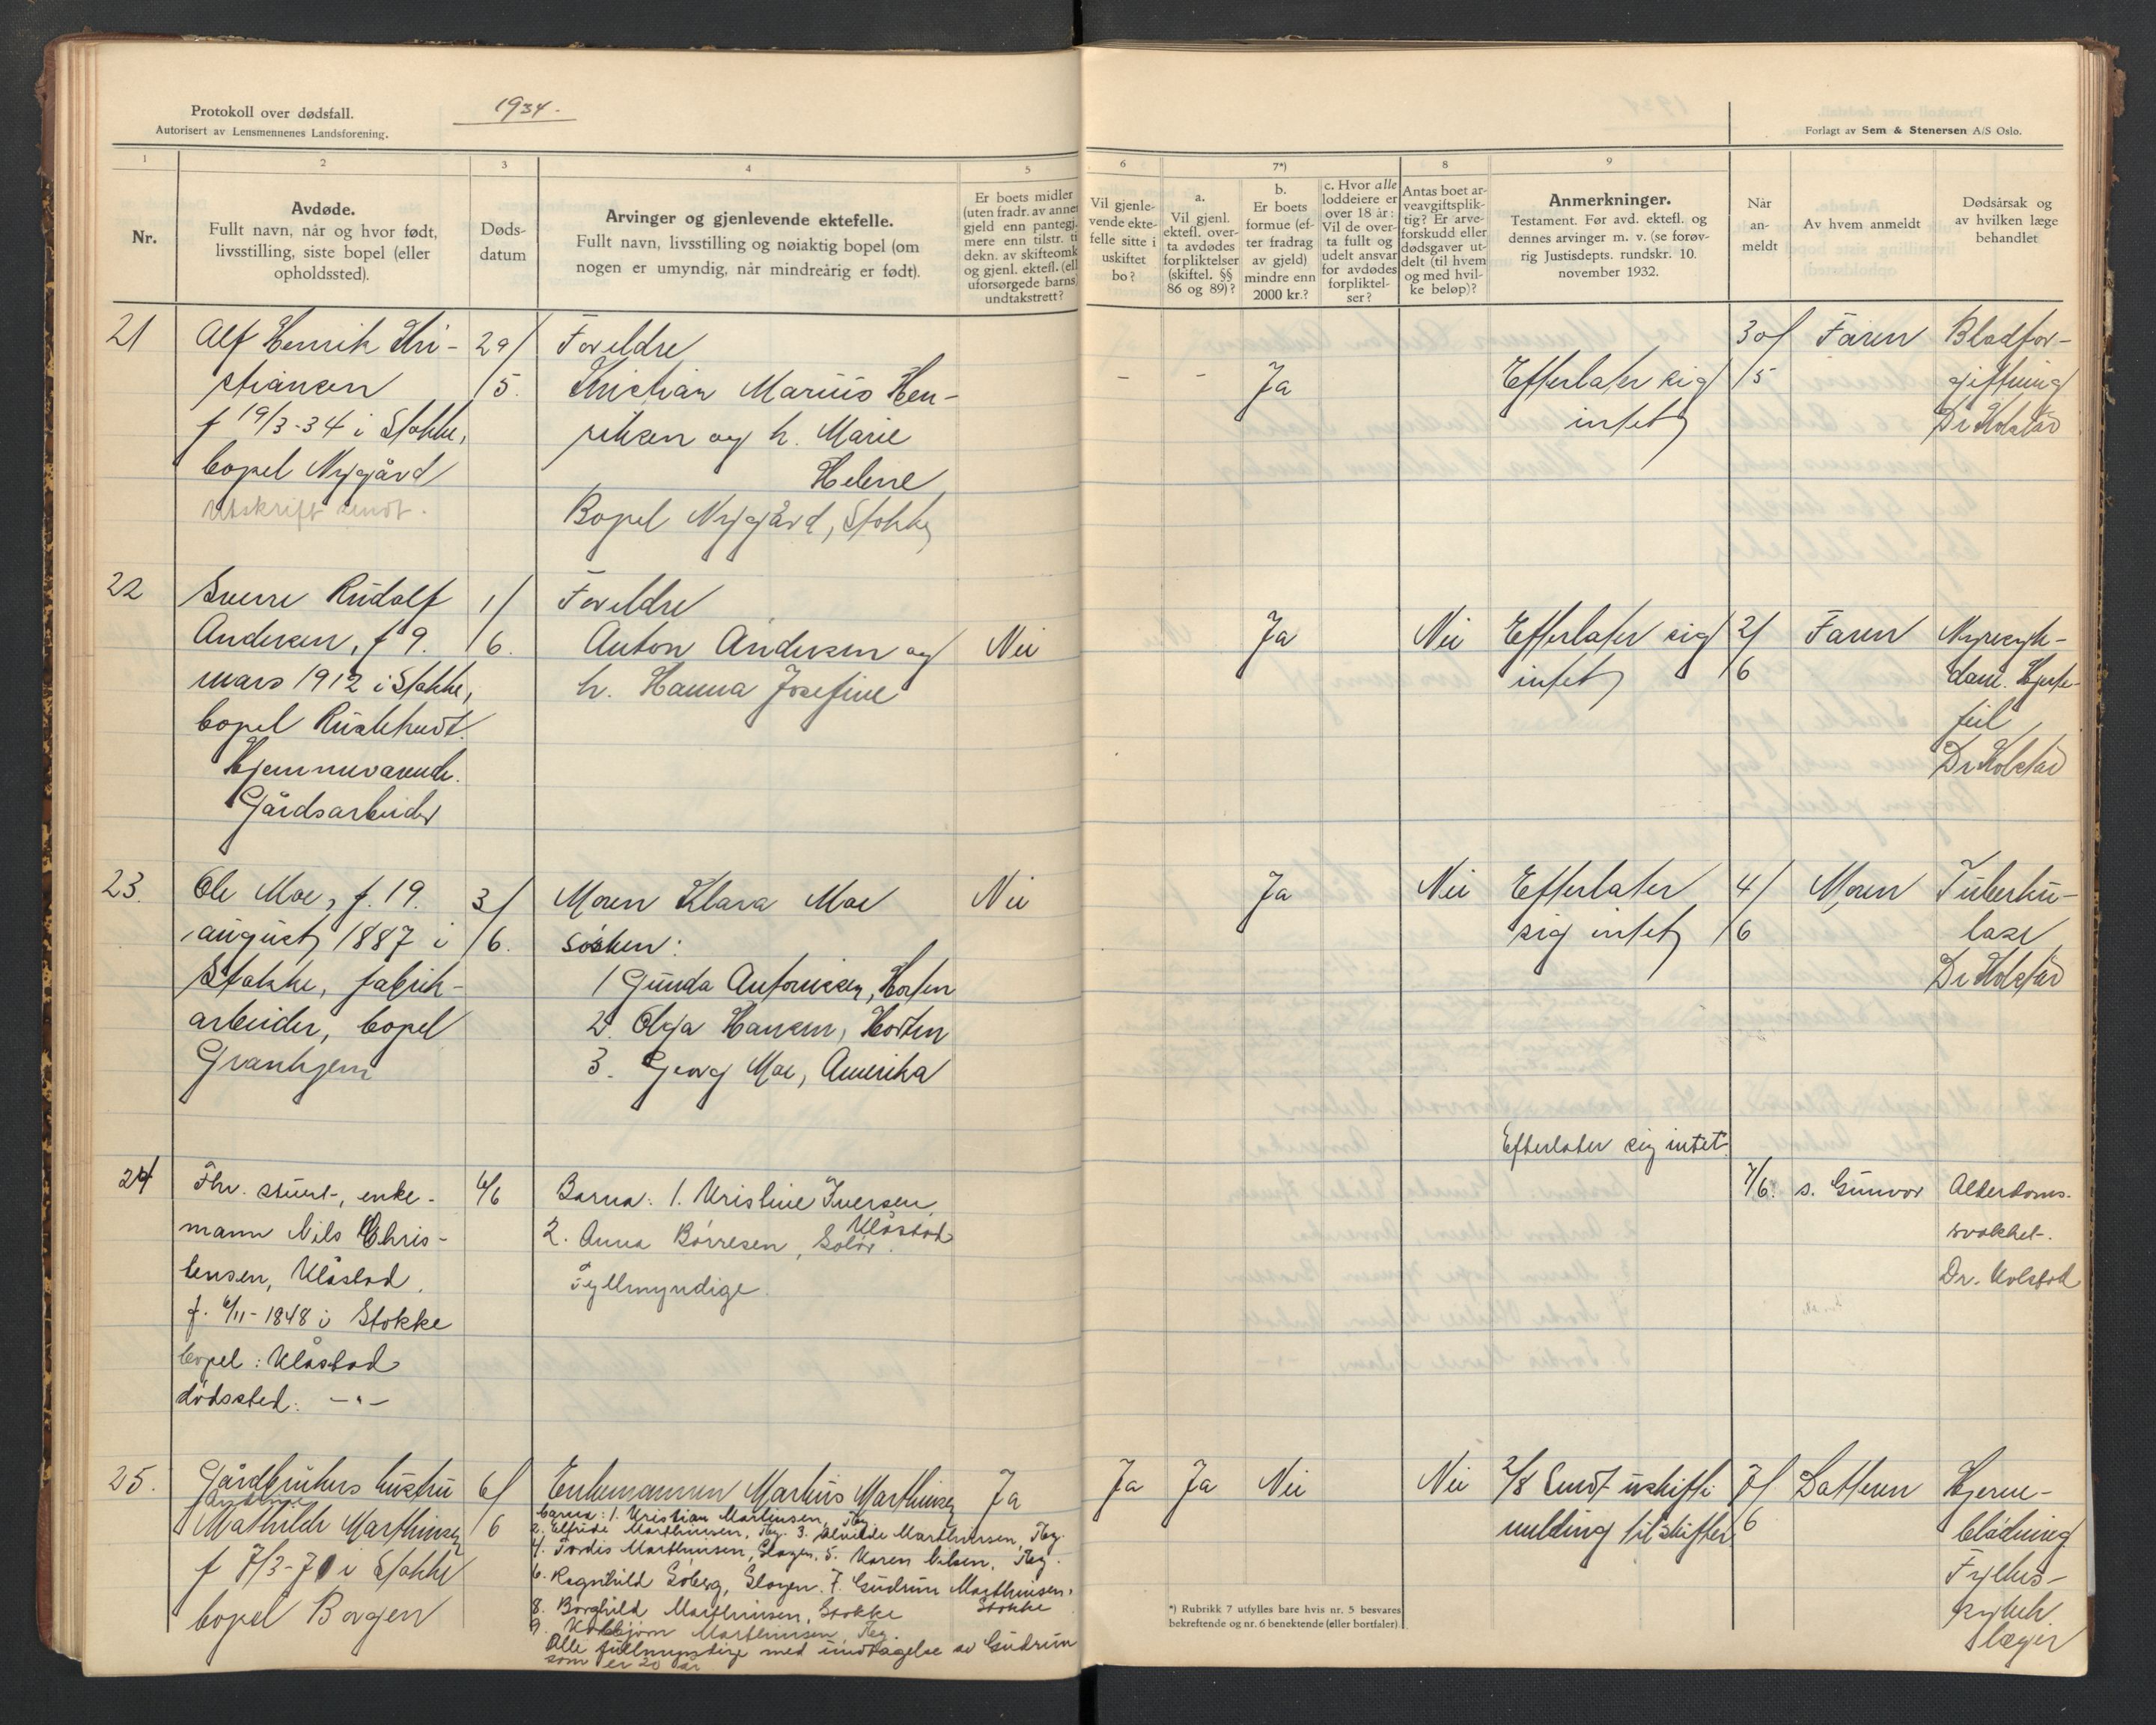 Protokoll over dødsfall.
Autorisert av Lensmennenes Landsforening.
1934.
Forlagt av Sem & Stenersen A/S Oslo.
1
2
3
4
5
6
7*)
8
9
Nr.
Avdøde.
Fullt navn, når og hvor født,
livsstilling, siste bopel (eller
opholdssted).
Døds-
datum
Arvinger og gjenlevende ektefelle.
Fullt navn, livsstilling og nøiaktig bopel (om
nogen er umyndig, når mindreårig er født).
Er boets midler
(uten fradr. av annet
gjeld enn pantegj.
mere enn tilstr. ti
dekn. av skifteomk
og gjenl. ektefl. (ell
uforsørgede barns
undtakstrett?
Vil gjenle-
vende ekte-
felle sitte i
uskiftet
bo?
a.
Vil gjenl.
ektefl. over-
ta avdødes
forpliktelser
(skiftel. §§
86 og 89)?
b.
Er boets
formue (ef-
ter fradrag
av gjeld)
mindre enn
2000 kr.?
c. Hvor alle
loddeiere er
over 18 år:
Vil de over-
ta fullt og
udelt ansvar
for avdødes
forpliktel-
ser?
Antas boet ar-
veavgiftsplik-
tig? Er arve-
forskudd eller
dødsgaver ut-
delt (til hvem
og med hvil-
ke beløp)?
Anmerkninger.
Testament. Før avd. ektefl. og
dennes arvinger m. v. (se forøv-
rig Justisdepts. rundskr. 10.
november 1932.
Når
an-
meldt
Av hvem anmeldt
Dødsårsak og
av hvilken læge
behandlet
21
Alf Henrik Kri-
stiansen
f 19/3-34 i Stokke,
bopel Nygård
Utskrift sendt.
29/5.
Foreldre
Kristian Marius Hen-
riksen og h. Marie
Helene
Bopel Nygård, Stokke
-
-
Ja
Efterlater sig
intet
30/5
Faren
Blodfor-
giftning
Dr Kolstad
22
Sverre Rudolf
Andersen, f 9.
mars 1912 i Stokke,
bopel
Hjemmeværende.
Gårdsarbeider
1/6.
Foreldre
Anton Andersen og
h. Hanna Josefine
Nei
Ja
Nei
Efterlater sig
intet
2/6
Faren
Nyresyk-
dom. Hjerte-
feil
Dr Kolstad
23.
Ole Moe, f. 19.
august 1887 i
Stokke, fabrik-
arbeider, bopel
Granhjem
3/6.
Moren Klara Moe
Søsken:
1 Gunda Antonissen, Horten
2. Olga Hansen, Horten
3. Georg Moe, Amerika
Nei
Ja
Nei
Efterlater
sig intet
4/6
Moren
Tuberku-
lose
Dr Kolstad
24
Fhv. stuert, enke-
mann Nils Chris-
tensen, Klåstad.
f. 6/11-1848 i Stokke
bopel: Klåstad
dødssted: -"-
6/6
Barna: 1. Kristine Iversen,
Klåstad
2. Anna Børresen, Solør.
Fyllmyndige.
Efterlater sig intet
7/6.
s. Gunvor
Alderdoms-
svakhet.
Dr. Kolstad
25.
Gårdbrukers hustru
Mathilde Marthinsen
f 7/3-71 i Stokke
bopel Borgen
6/6
Enkemannen Markus Marthinsen
barna: 1. Kristian Martinsen, Tbg.
2. Elfride Marthinsen, Tbg. 3. Alvilde Marthinsen, Tbg.
4. Tordis Marthinsen, Slagen. 5. Karen Nilsen, Tbg.
6. Ragnhild Soberg, Slagen. 7. Gudrun Marthinsen,
Stokke
8. Borghild Marthinsen, Stokke
9. Kolbjørn Marthinsen, Tbg.
Alle fullmyndige med undtagelse av Gudrun
som er 20 år
Ja
Ja
Ja
Nei
Nei
2/8 Sendt uskifte-
melding til skifter
7/6
Datteren
Hjerne-
blødning
Fylkes-
sykeh.
læger
*) Rubrikk 7 utfylles bare hvis nr. 5 besvares
bekreftende og nr. 6 benektende (eller bortfaler).